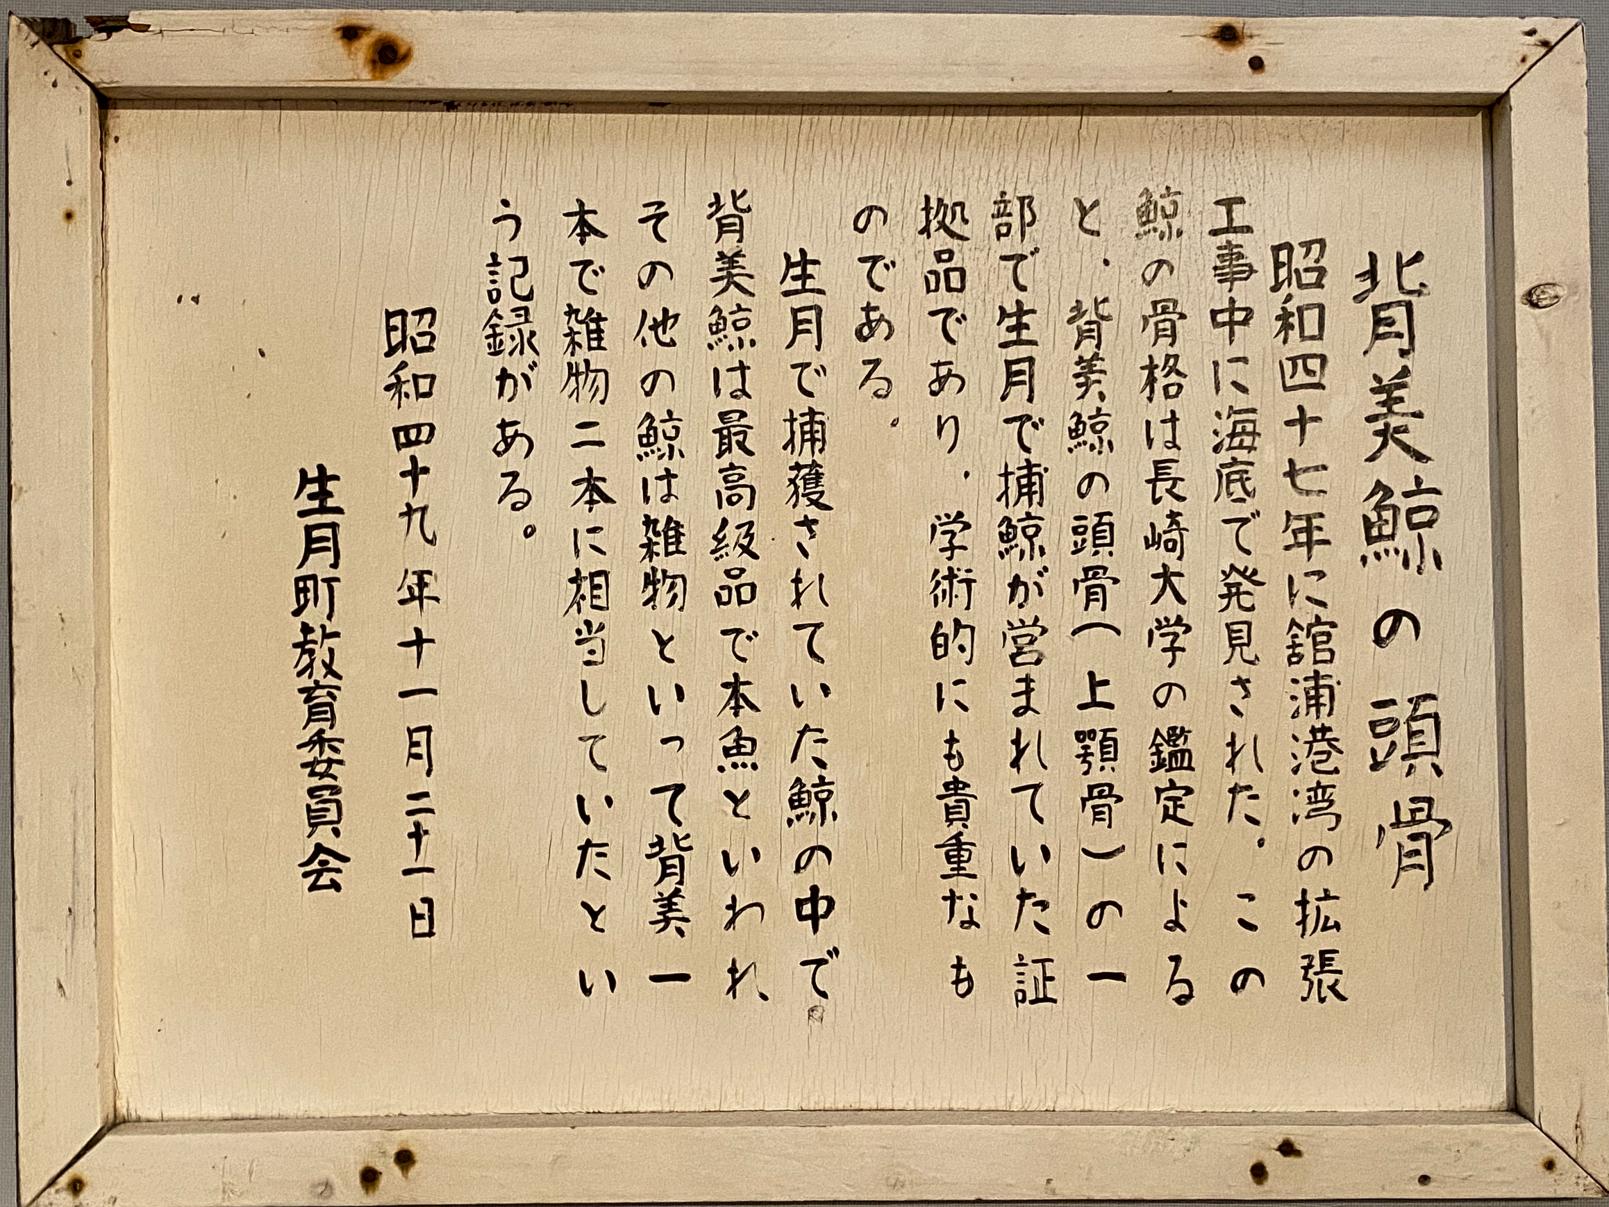 背美鯨の頭骨
昭和四十七年に舘浦港湾の拡張
工事中に海底で発見された。この
鯨の骨格は長崎大学の鑑定による
と、背美鯨の頭骨(上顎骨)の一
部で生月で捕鯨が営まれていた証
拠品であり、学術的にも貴重なも
のである。
生月で捕獲されていた鯨の中で。
背美鯨は最高級品で本魚といわれ、
その他の鯨は雑物といって背美一
本で雑物二本に相当していたとい
う記録がある。
昭和四十九年十一月二十一日
生月町教育委員会